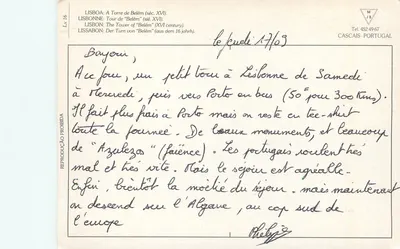 LISBOA: A Torre de Belém (séc. XVI).
LISBONNE: Tour de "Belém" (sèc. XVI).
LISBON: The Tower of "Belém" (XVI century).
LISSABON: Der Turm von "Belém" (aus dem 16 jahrh).
CASCAIS PORTUGAL
REPRODUÇÃO PROIBIDA
le jeudi 17/09
Bonjour,
A ce jour, un petit tour à Lisbonne de Samedi
à Mercredi, puis vers Porto en bus (50F pour 300 Kms).
Il fait plus frais à Porto mais on reste en tee-shirt
toute la journée. De beaux monuments, et beaucoup
de "Azulezos" (faïence). Les portugais roulent très
mal et très vite. Mais le séjour est agréable.
Enfin, bientôt la moitié du séjour. mais maintenant
on descend sur l'Algarve, au cap sud de
l'europe
Philippe